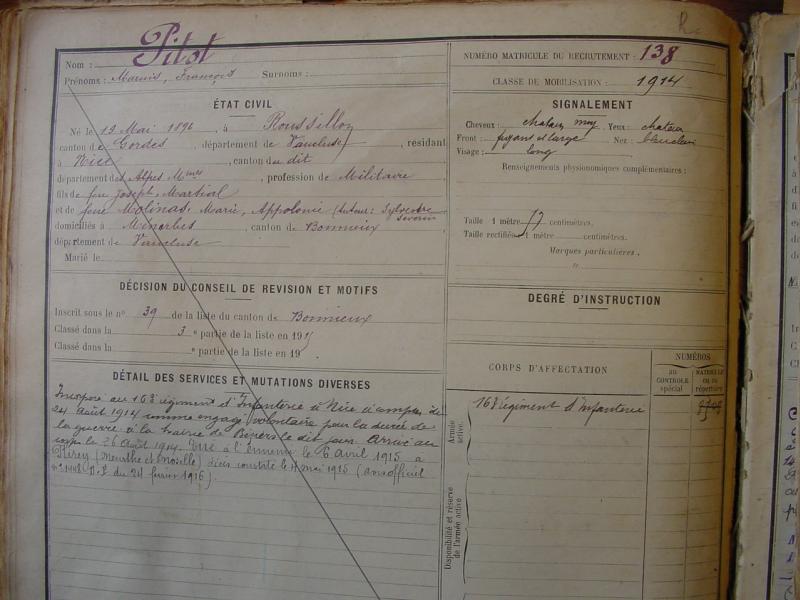 Nom : Pitot
Prénoms : Marius, François Surnoms :
ÉTAT CIVIL
Né le 12 Mai 1896, à Roussillon
canton de Gordes, département de Vaucluse, résidant
à Nice, canton du dit
département des Alpes Mmes, profession de Militaire
fils de feu Joseph, Martial
et de feue Molinas, Marie, Appolonie (tuteur : Sylvestre
domiciliés à Ménerbes, canton de Bonnieux
département de Vaucluse
Marié le
DÉCISION DU CONSEIL DE REVISION ET MOTIFS
Inscrit sous le n° 39 de la liste du canton de Bonnieux
Classé dans la 3 e partie de la liste en 1915
Classé dans la e partie de la liste en 19
DÉTAIL DES SERVICES ET MUTATIONS DIVERSES
Incorporé au 163e régiment d'Infanterie à Nice à compter du
24 Août 1914 comme engagé volontaire pour la durée de
la guerre à la mairie de le dit jour. Arrivé au
corps le 26 Août 1914. Tué à l'ennemi le 6 avril 1915 à
Flirey (Meurthe et Moselle) décès constaté le 4 mai 1915 (avis officiel
du 24 février 1916).
NUMÉRO MATRICULE DU RECRUTEMENT : 138
CLASSE DE MOBILISATION : 1914
SIGNALEMENT
Cheveux : chatain moy Yeux : chatain
Front : fuyant et large Nez :
Visage : long
Renseignements physionomiques complémentaires :
Taille 1 mètre 57 centimètres.
Taille rectifiée 1 mètre centimètres.
Marques particulières,
"
DEGRÉ D'INSTRUCTION
CORPS D'AFFECTATION
NUMÉROS
AU CONTROLE spécial
MATRICULE ou au répertoire
Armée active.
163 régiment d'Infanterie
Disponibilité et réserve de l'armée active